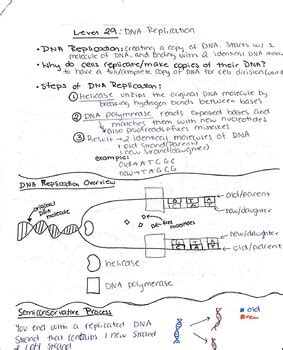 Level 29: DNA Replication
• DNA Replication: creating a copy of DNA. Starts w/ 1
molecule of DNA, and ending with 2 identical DNA
• Why do cells replicate/make copies of their DNA?
to have a full/complete copy of DNA for cell division
• Steps of DNA Replication:
① Helicase unzips the original DNA molecule by
breaking hydrogen bonds between bases
② DNA polymerase reads exposed bases and
matches them with new nucleotides
also proofreads & fixes mistakes
③ Result → 2 identical molecules of DNA
1 old strand (parent)
1 new strand (daughter)
example:
old → A T C G C
new → T A G C G
DNA Replication Overview
original
DNA
molecule
old/parent
new/daughter
new/daughter
old/parent
helicase
DNA polymerase
Semiconservative Process
You end with a replicated DNA
Strand that contains 1 new Strand
old
new